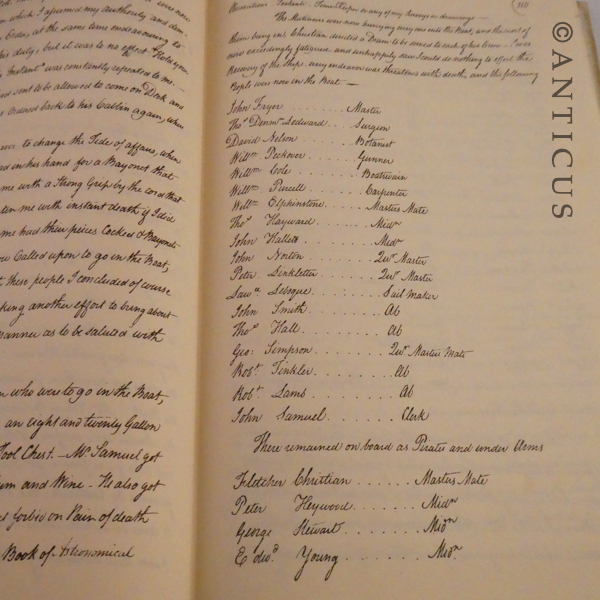 which I assumed my authority and
Order, at the same time endeavouring to
his duty; but it was to no effect "Hold your
Instant" was constantly repeated to me. —
sent to be allowed to come on Deck and
Ordered back to his Cabbin again, when
to change the Tide of affairs, when
had in his hand for a Bayonet that
me with a Strong Grip by the cord that
me with instant death if I did
me had their pieces Cocked & Bayonets
Called upon to go in the Boat,
these people I concluded of course
making another effort to bring about
manner as to be saluted with
who were to go in the Boat,
an eight and twenty Gallon
Tool Chest. — Mr. Samuel got
Rum and Wine — He also got
forbid on Pain of death
Book of Astronomical
Observations Sextant Time Keeper or any of my Surveys or drawings —
The Mutineers were now hurrying every one into the Boat, and the most of
them being in, Christian directed a Dram to be served to each of his Crew — I was
now exceedingly fatigued, and unhappily saw I could do nothing to effect the
Recovery of the Ship, every endeavor was threatned with death, and the following
People were now in the Boat —
John Fryer ........ Master
Thos. Denmn. Ledward .. Surgeon
David Nelson ...... Botanist
Willm. Peckover ..... Gunner
Willm. Cole ....... Boatswain
Willm. Purcell ..... Carpenter
Willm. Elphinstone ..... Masters Mate
Thos. Hayward ..... Midn.
John Hallett ....... Midn.
John Norton ....... Qur. Master
Peter Linkletter ..... Qur. Master
Lawce. Lebogue ...... Sail Maker
John Smith ....... Ab
Thos. Hall ........ Ab
Geo: Simpson ....... Qur. Master Mate
Robt. Tinkler ....... Ab
Robt. Lamb ....... Ab
John Samuel ....... Clerk
There remained on board as Pirates and under Arms
Fletcher Christian ..... Masters Mate
Peter Heywood ...... Midn.
George Stewart ...... Midn.
Edwd. Young ....... Midn.
©ANTICUS